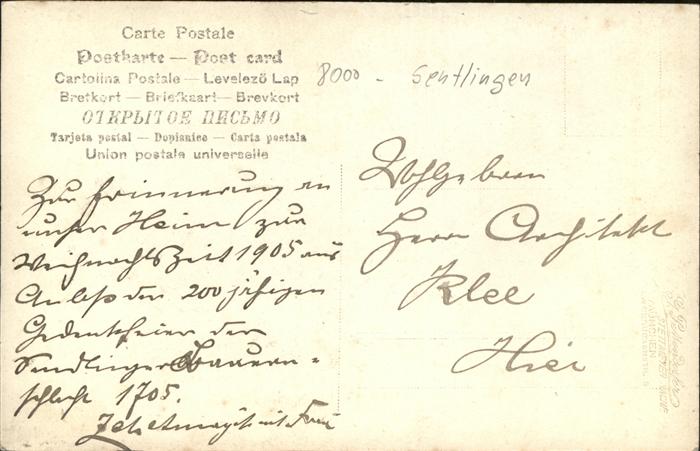 Carte Postale
Postkarte — Post card
Cartolina Postale — Levelező Lap
Bretkort — Briefkaart — Brevkort
ОТКРЫТОЕ ПИСЬМО
Tarjeta postal — Dopisnice — Carta postala
Union postale universelle
8000 - Sentlingen
Zur Erinnerung an
unser Heim zur
Weihnachtszeit 1905 aus
Anlaß der 200 jährigen
Gedenkfeier der
Sendlinger Bauern-
schlacht 1705.
mit Frau
Wohlgeboren
Herrn Architekt
Klee
Hier
MÜNCHEN